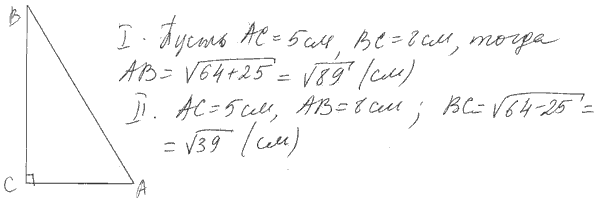 B
I. Пусть AC = 5см, BC = 8см, тогда
AB = √64+25 = √89 (см)
II. AC = 5см, AB = 8см; BC = √64-25 =
= √39 (см)
C A